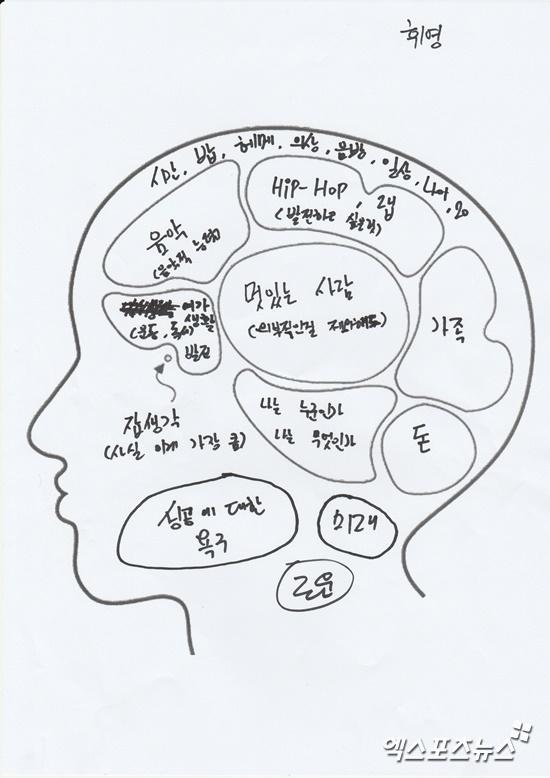 휘영
시간, 밥, 헤메, 의상, 음방, 일상, 나이, 20
음악
(음악적 능력)
HiP-HoP, 랩
(발전하고 싶은 것)
여가
생활
(운동, 독서)
발전
멋있는 사람
(외부적인걸 제외해도)
가족
잡생각
(사실 이게 가장 큼)
나는 누군인가
나는 무엇인가
돈
성공에 대한
욕구
미래
로운
엑스포츠뉴스